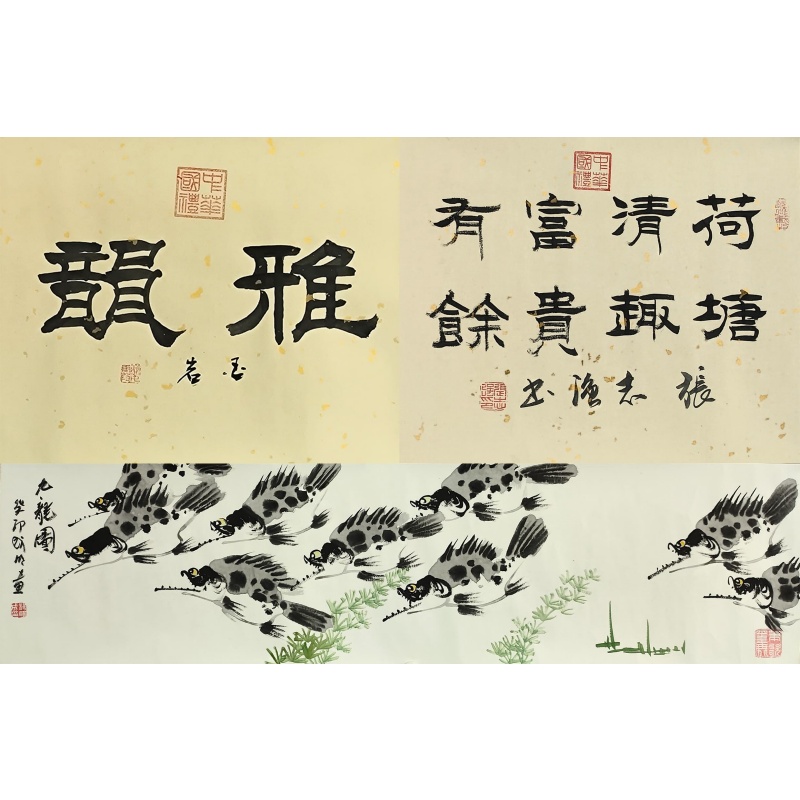 中華國禮
雅韻
中華國禮
荷塘
清趣
富貴
有餘
張志強書
九龍圖
癸卯